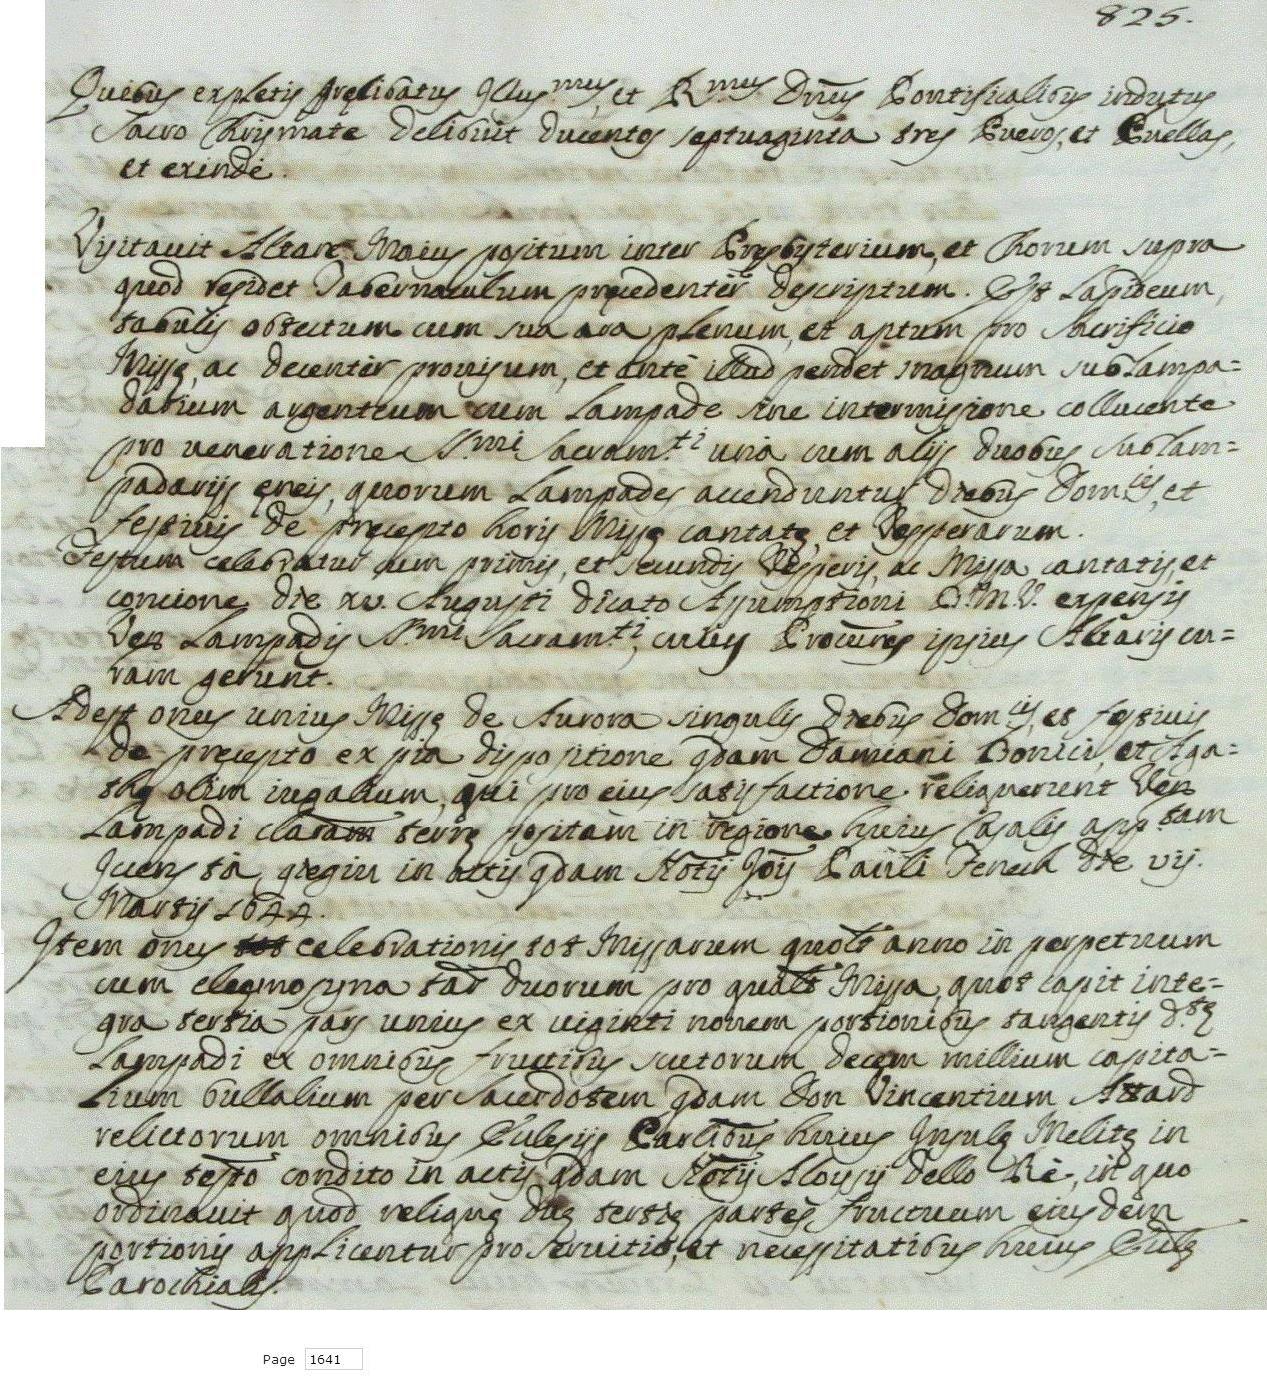 825.
Quibus expletis pręlibatus Illus.mus, et R.mus Dnus Pontificalibus indutus
Sacro Chrismate delibuit ducentos septuaginta tres Pueros, et Puellas,
et exindè.
Visitauit Altare Maius positum inter Presbyterium, et Chorum supra
quod residet Tabernaculum pręcedentèr descriptum. Est Lapideum,
tabulis obtectum cum sua ara plenum, et aptum pro Sacrificio
Missę, ac decentèr prouisum, et antè illud pendet magnum sublampa=
darium argenteum cum Lampade sine intermissione collucente
pro ueneratione S.mi Sacram.ti unà cum alijs duobus sublam=
padarijs ęneis, quorum Lampades accenduntur diebus Dom.cis, et
festiuis de precepto horis Missę cantatę, et Vesperarum.
Festum celebratur cum primis, et secundis Vesperis, ac Missa cantatis, et
concione die xv. Augusti dicato Assumptioni B.M.V. expensis
Ven Lampadis S.mi Sacram.ti, cuius Procures ipsius Altaris cu=
ram gerunt.
Adest onus unius Missę de Aurora singulis diebus Dom.cis, et festiuis
de precepto ex pia dispositione qdam Damiani Bonici, et Aga=
thę olim iugalium, qui pro eius satisfactione reliquerunt Ven
Lampadi terrę positam in regione huius Casalis app.tam
in actis qdam Notij Jois Pauli Fenech die vij.
Martij 1644.
Item onus celebrationis tot Missarum quolt anno in perpetuum
cum elegmosyna tar duorum pro qualt Missa, quot capit inte=
gra tertia pars unius ex uiginti nouem portionibus tangentis d.tę
Lampadi ex omnibus fructibus scutorum decem millium capita=
lium bullalium per Sacerdotem qdam Don Vincentium Attard
relictorum omnibus Ecclesijs Parlibus huius Insulę Melitę in
eius testo condito in actis qdam Notij Aloysij dello Rè, in quo
ordinauit quod reliquę duę tertię partes fructuum eiusdem
portionis applicentur pro seruitio, et necessitatibus huius Eccle
Parochialis.
Page 1641